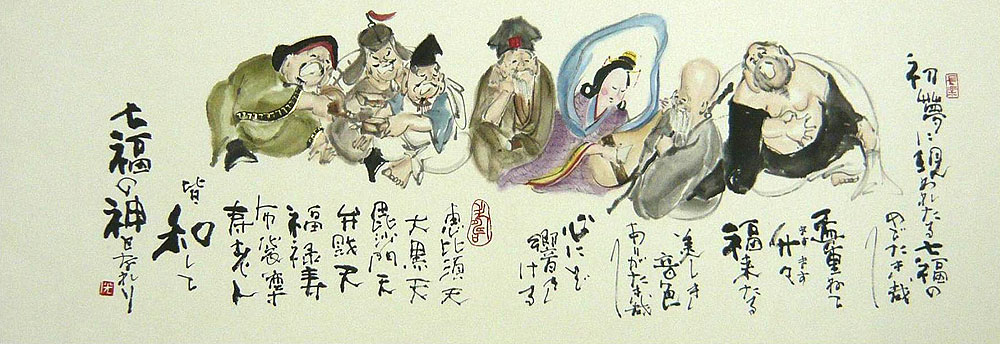 初夢に現われたる七福の
めでたき哉
盃重ねて
升々
ます ます
福来たる
美しき
音色
ありがたき哉
心にぞ
響きける
恵比須天
大黒天
毘沙門天
弁戝天
福禄寿
布袋尊
寿老人
皆
和して
七福の神となれり